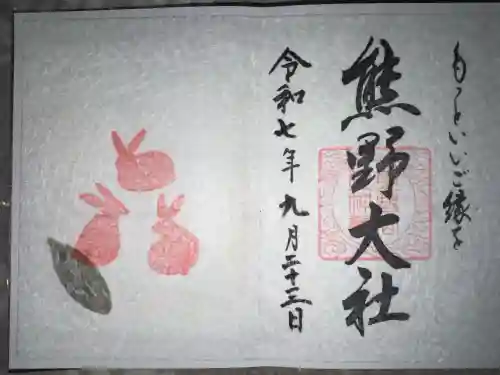 もっといいご縁を
熊野大社
令和七年九月二十三日